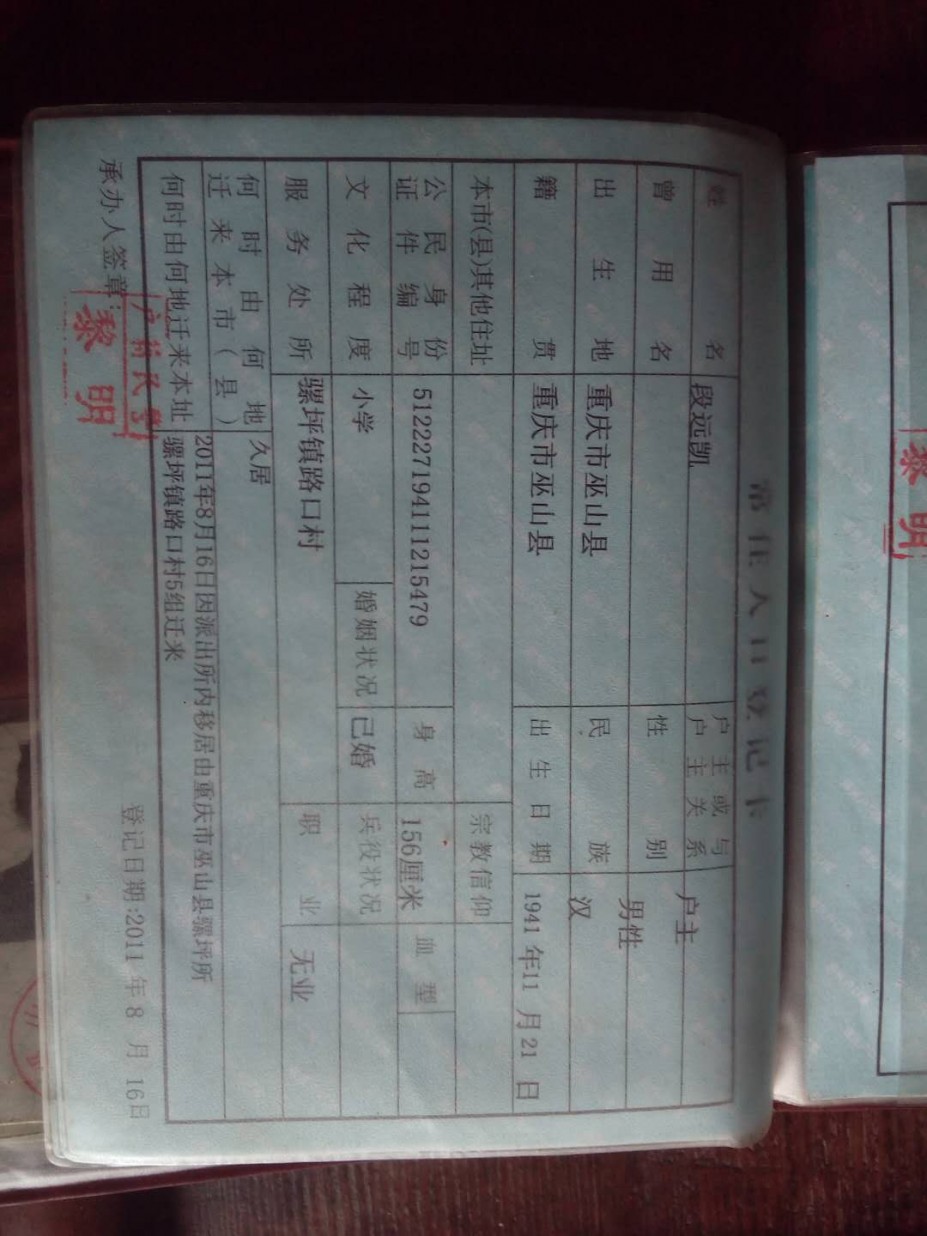 常住人口登记卡
姓名 段远凯 户主或与户主关系 户主
曾用名 性别 男性
出生地 重庆市巫山县 民族 汉
籍贯 重庆市巫山县 出生日期 1941年11月21日
本市(县)其他住址 宗教信仰
公民身份证件编号 512227194111215479 身高 156厘米 血型
文化程度 小学 婚姻状况 已婚 兵役状况
服务处所 骡坪镇路口村 职业 无业
何时由何地迁来本市(县) 久居
何时由何地迁来本址 2011年8月16日因派出所内移居由重庆市巫山县骡坪所
骡坪镇路口村5组迁来
承办人签章: 登记日期:2011年8月16日
黎明
黎明